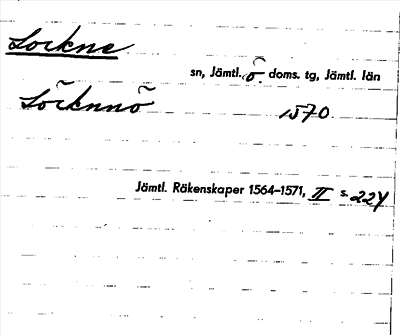 Lockne
sn, Jämtl. ö. doms. tg, Jämtl. län
Löcknnö 1570.
Jämtl. Räkenskaper 1564–1571, II s. 224